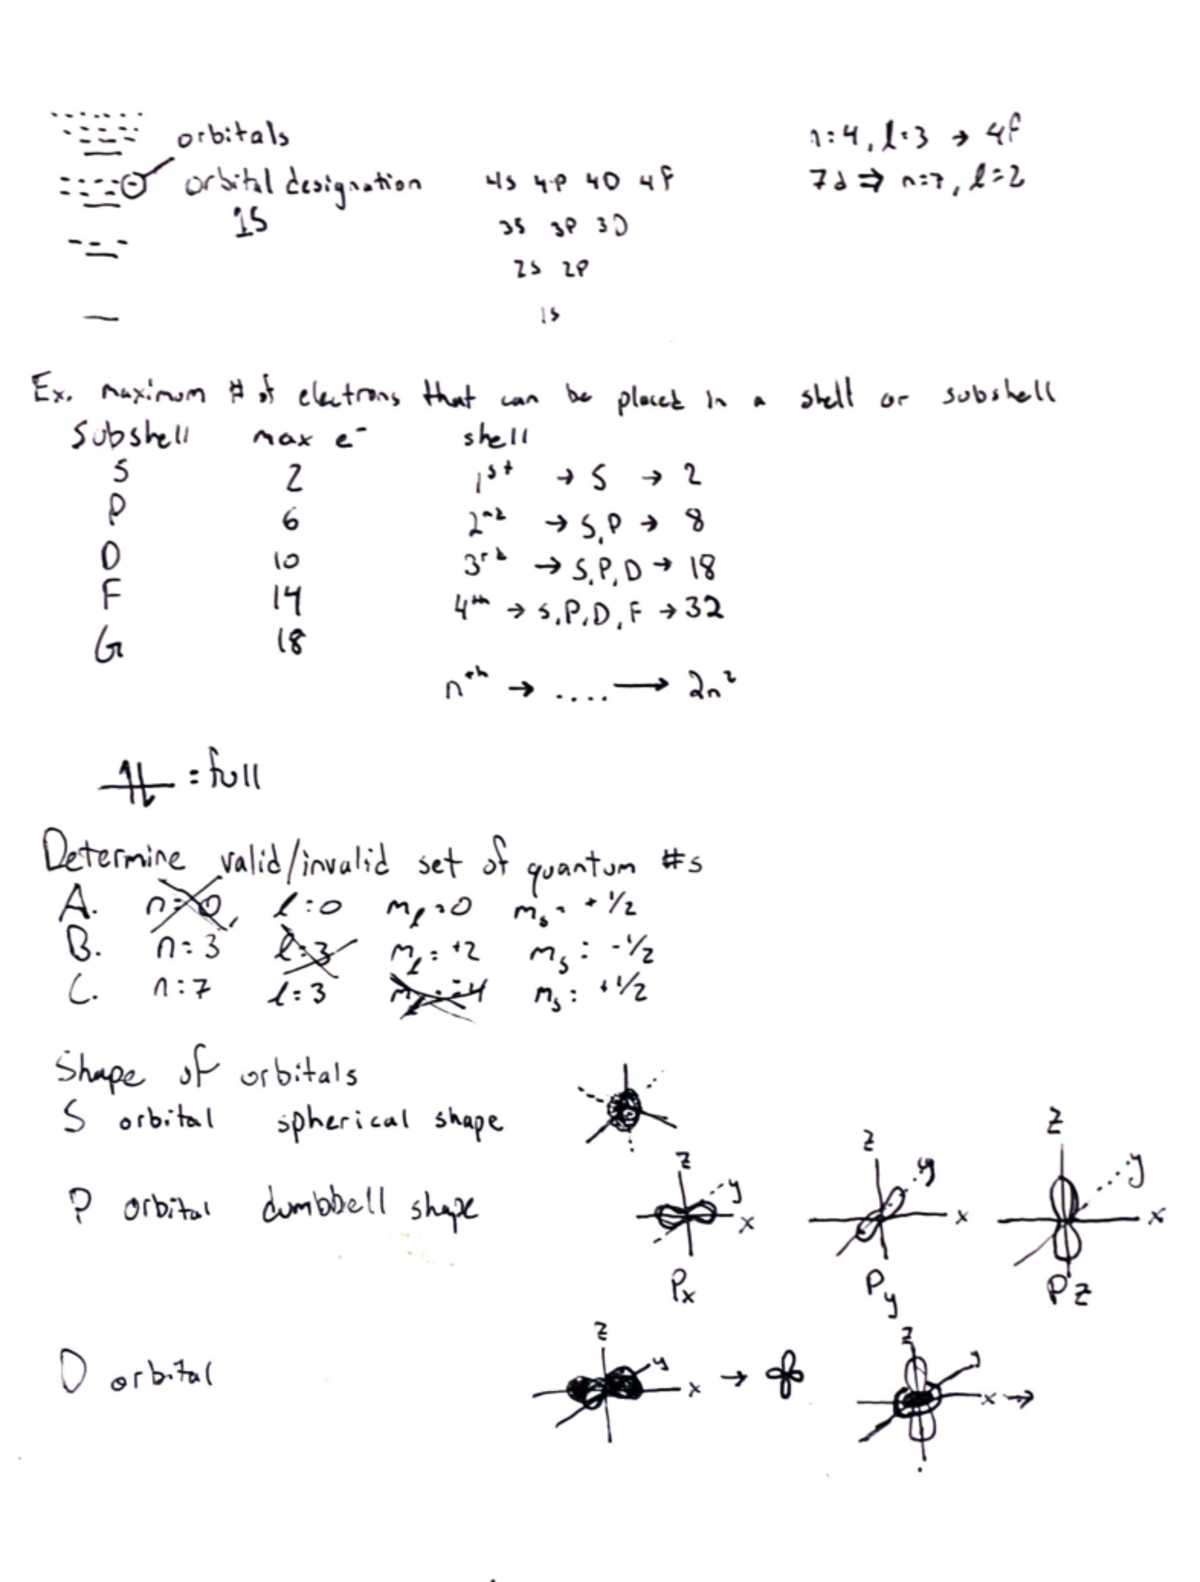 orbitals
n=4, l=3 → 4f
orbital designation 4s 4p 4D 4f
7d ⇒ n=7, l=2
1S
3s 3p 3D
2s 2p
1s
Ex. maximum # of electrons that can be placed in a shell or subshell
Subshell max e⁻ shell
S 2 1st → S → 2
P 6 2nd → S,P → 8
D 10 3rd → S,P,D → 18
F 14 4th → S,P,D,F → 32
G 18
nth → .... → 2n²
⥮ = full
Determine valid/invalid set of quantum #s
A. n=0 l=0 mₗ=0 mₛ= +1/2
B. n=3 l=3 mₗ=+2 mₛ= -1/2
C. n=7 l=3 mₗ=-4 mₛ= +1/2
Shape of orbitals
S orbital spherical shape
P orbital dumbbell shape
z y x
Px
z y x
Py
z y x
Pz
D orbital
z y x →
z y x →